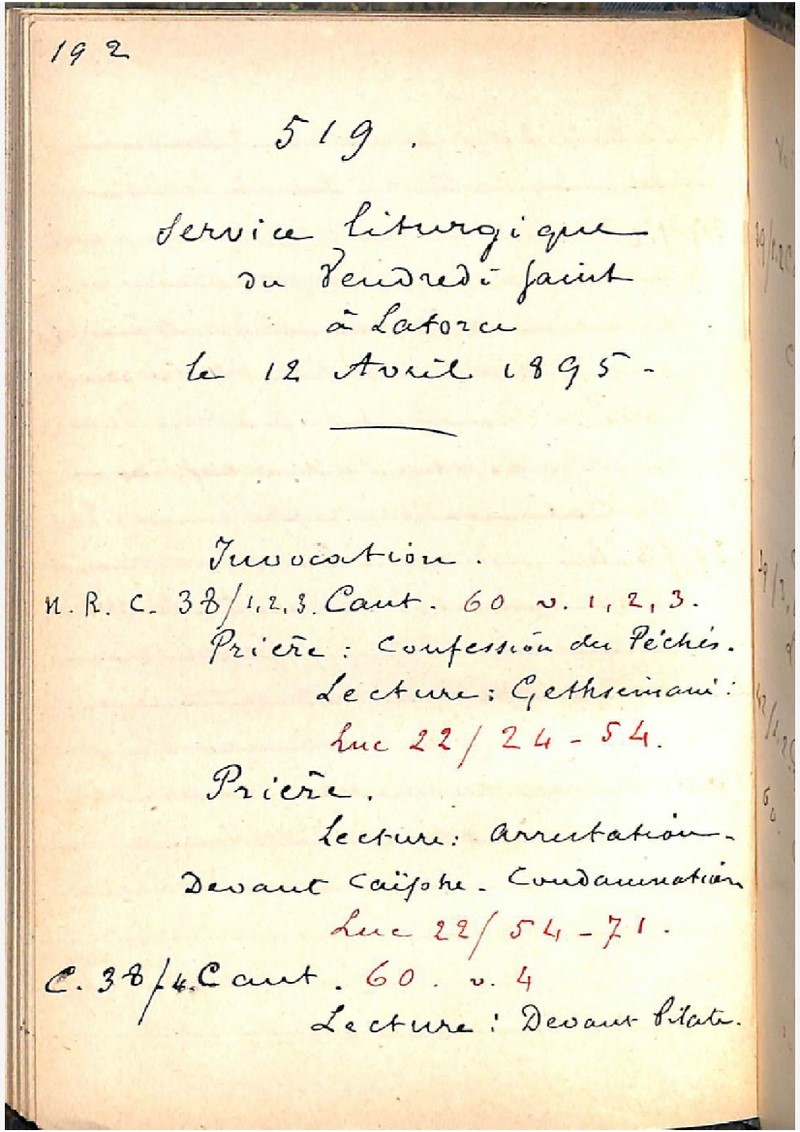 192
519.
Service liturgique
du Vendredi Saint
à Laforce
le 12 Avril 1895-
Invocation.
N. R. C. 38/1,2,3. Cant. 60 v. 1, 2, 3.
Prière : Confession des Péchés.
Lecture : Gethsémané :
Luc 22/24-54.
Prière.
Lecture : Arrestation-
Devant Caïphe - Condamnation
Luc 22/54-71.
C. 38/4. Cant. 60. v. 4
Lecture : Devant Pilate.